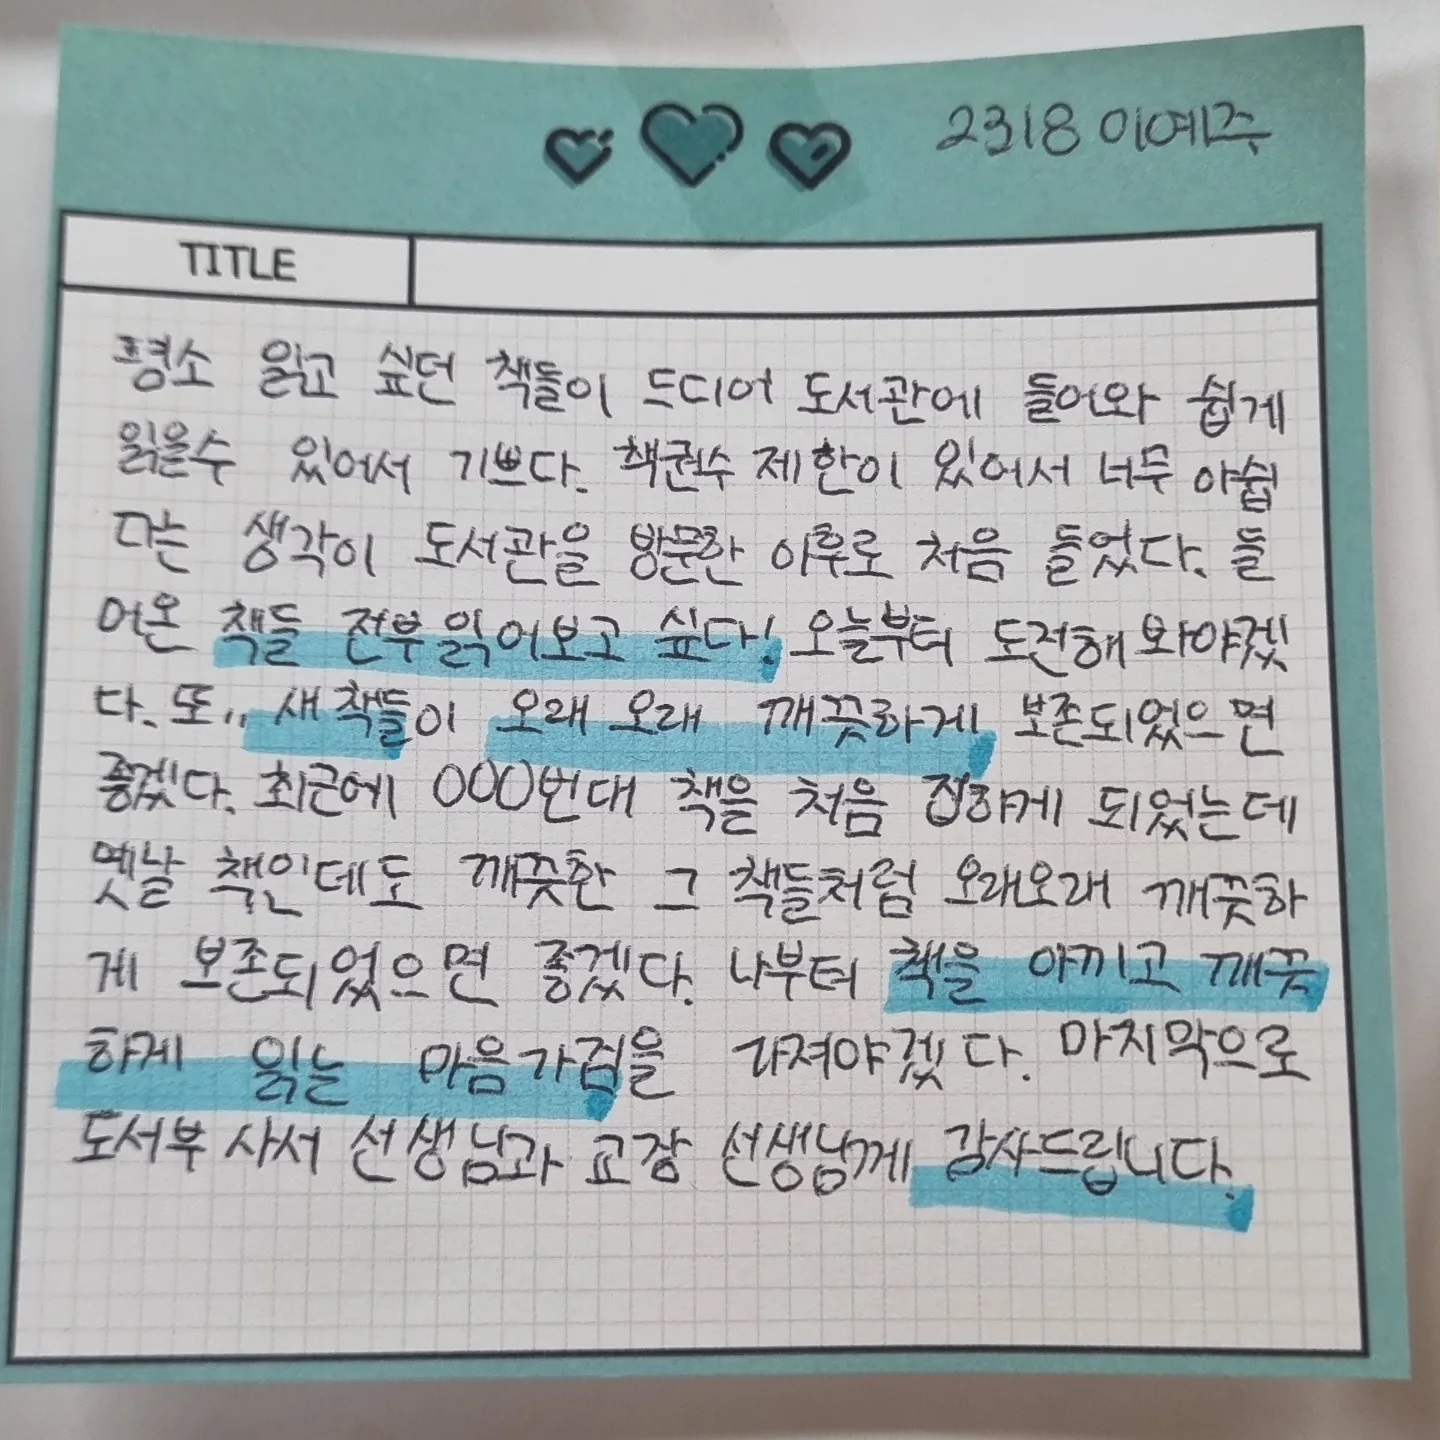 2318 이예주
TITLE
평소 읽고 싶던 책들이 드디어 도서관에 들어와 쉽게
읽을수 있어서 기쁘다. 책권수 제한이 있어서 너무 아쉽
다는 생각이 도서관을 방문한 이후로 처음 들었다. 들
어온 책들 전부읽어보고 싶다! 오늘부터 도전해 봐야겠
다. 또,, 새책들이 오래 오래 깨끗하게 보존되었으면
좋겠다. 최근에 000번대 책을 처음 접하게 되었는데
옛날 책인데도 깨끗한 그 책들처럼 오래오래 깨끗하
게 보존되었으면 좋겠다. 나부터 책을 아끼고 깨끗
하게 읽는 마음가짐을 가져야겠다. 마지막으로
도서부 사서 선생님과 교장 선생님께 감사드립니다.